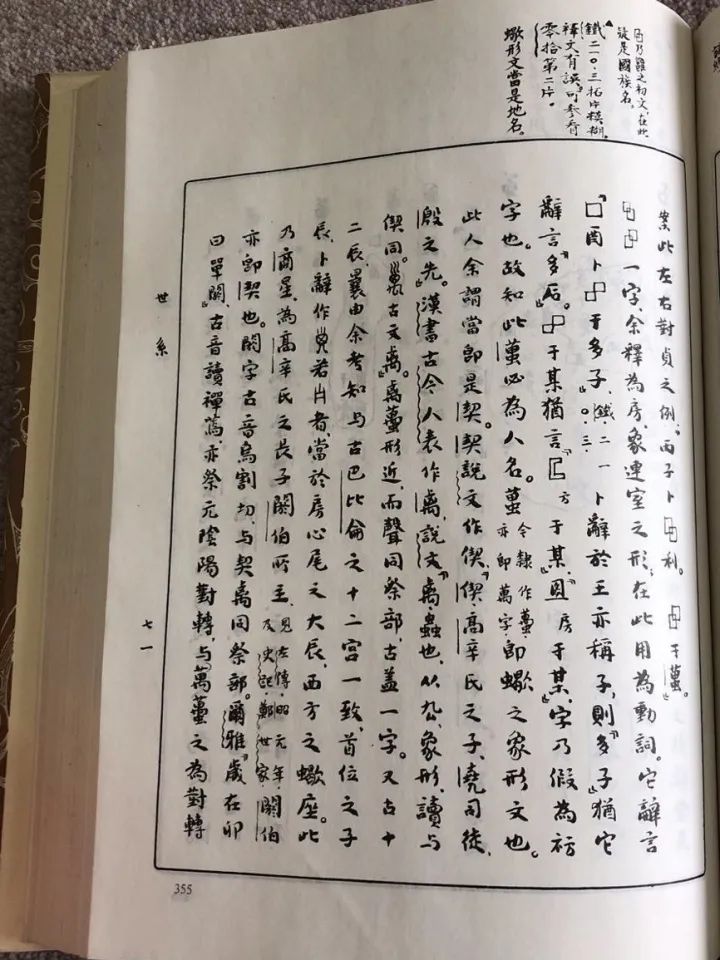 乃雝之初文，在此
疑是國族名。
鐵二一〇·三拓片模糊，
釋文有誤，可參看
零拾第二片。
蠍形文當是地名。
案此左右對貞之例，「丙子卜 利。 于藳。」
一字，余釋為房，象連室之形；在此用為動詞。它辭言
「囗酉卜 于多子，」鐵二一〇·三·卜辭於王亦稱子，則「多子」猶它
辭言「多后。」 于某猶言「匚方于某，囩房于某，」字乃假為祊
字也。故知此蠆必為人名。蠆今隸作薑，亦即萬字，即蠍之象形文也。
此人余謂當即是契。契說文作偰，「偰，高辛氏之子，堯司徒，
殷之先。」漢書古今人表作禼，說文「禼，蟲也，从厹，象形，讀與
偰同。 古文禼。」禼蠆形近，而聲同祭部，古蓋一字。又古十
二辰，曩由余考知与古巴比倫之十二宫一致，首位之子
辰，卜辭作 若 者，當於房心尾之大辰，西方之蠍座。此
乃商星，為高辛氏之長子閼伯所主，見左傳·昭元年，及史記·鄭世家，閼伯
亦即契也。閼字古音烏割切，与契禼同祭部。爾雅「歲在卯
曰單閼，」古音讀禪蔫，亦祭元陰陽對轉，与萬蠆之為對轉
世系
七一
355